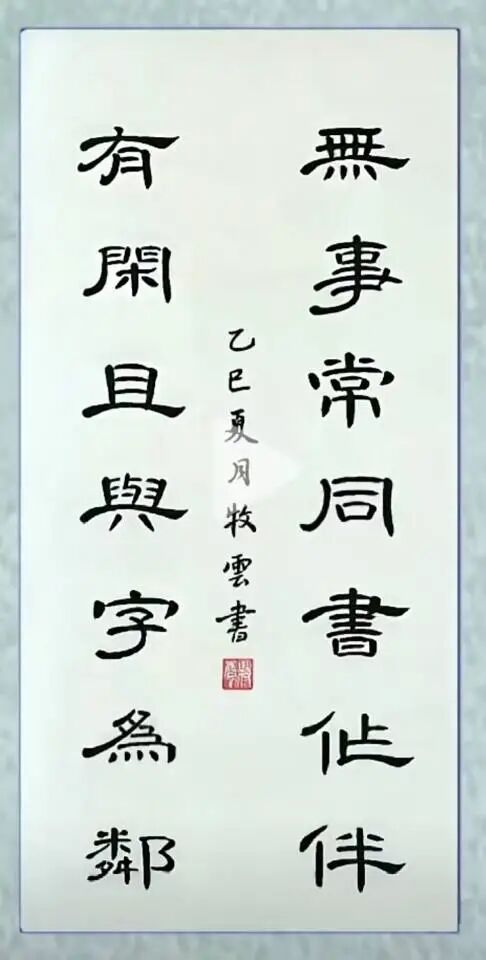 無事常同書作伴
有閑且與字為鄰
乙巳夏月牧雲書